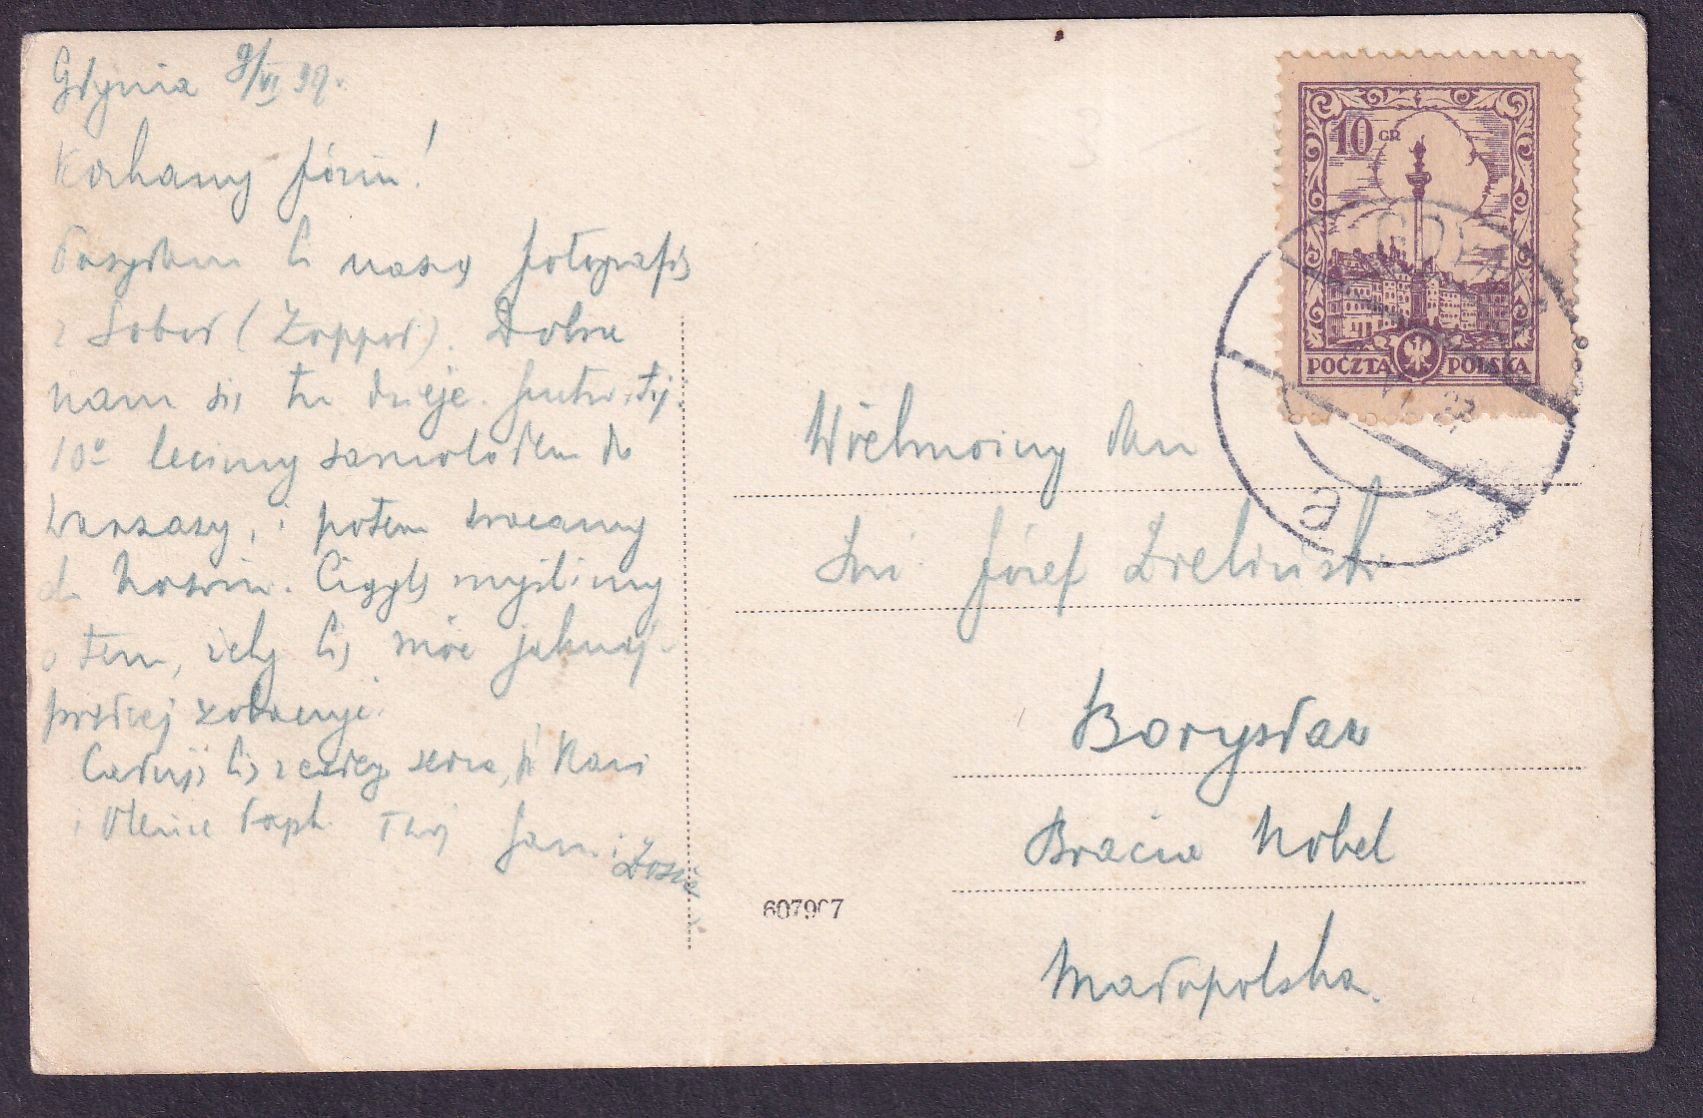 Gdynia 9/VI 39.
Kochany Józiu!
Posyłam Ci naszą fotografię
z Sobot (Zoppot). Dobrze
nam się tu dzieje. Jutro, tj.
10º lecimy samolotem do
Warszawy, i potem wracamy
do
o tem, żeby Cię móc jaknaj-
prędzej
Całuję Cię z całego serca,
i Twój Jan i Zosia
10 GR
POCZTA POLSKA
a
Wielmożny Pan
Inż. Józef Zieliński
Borysław
Bracia Nobel
Małopolska.
607907